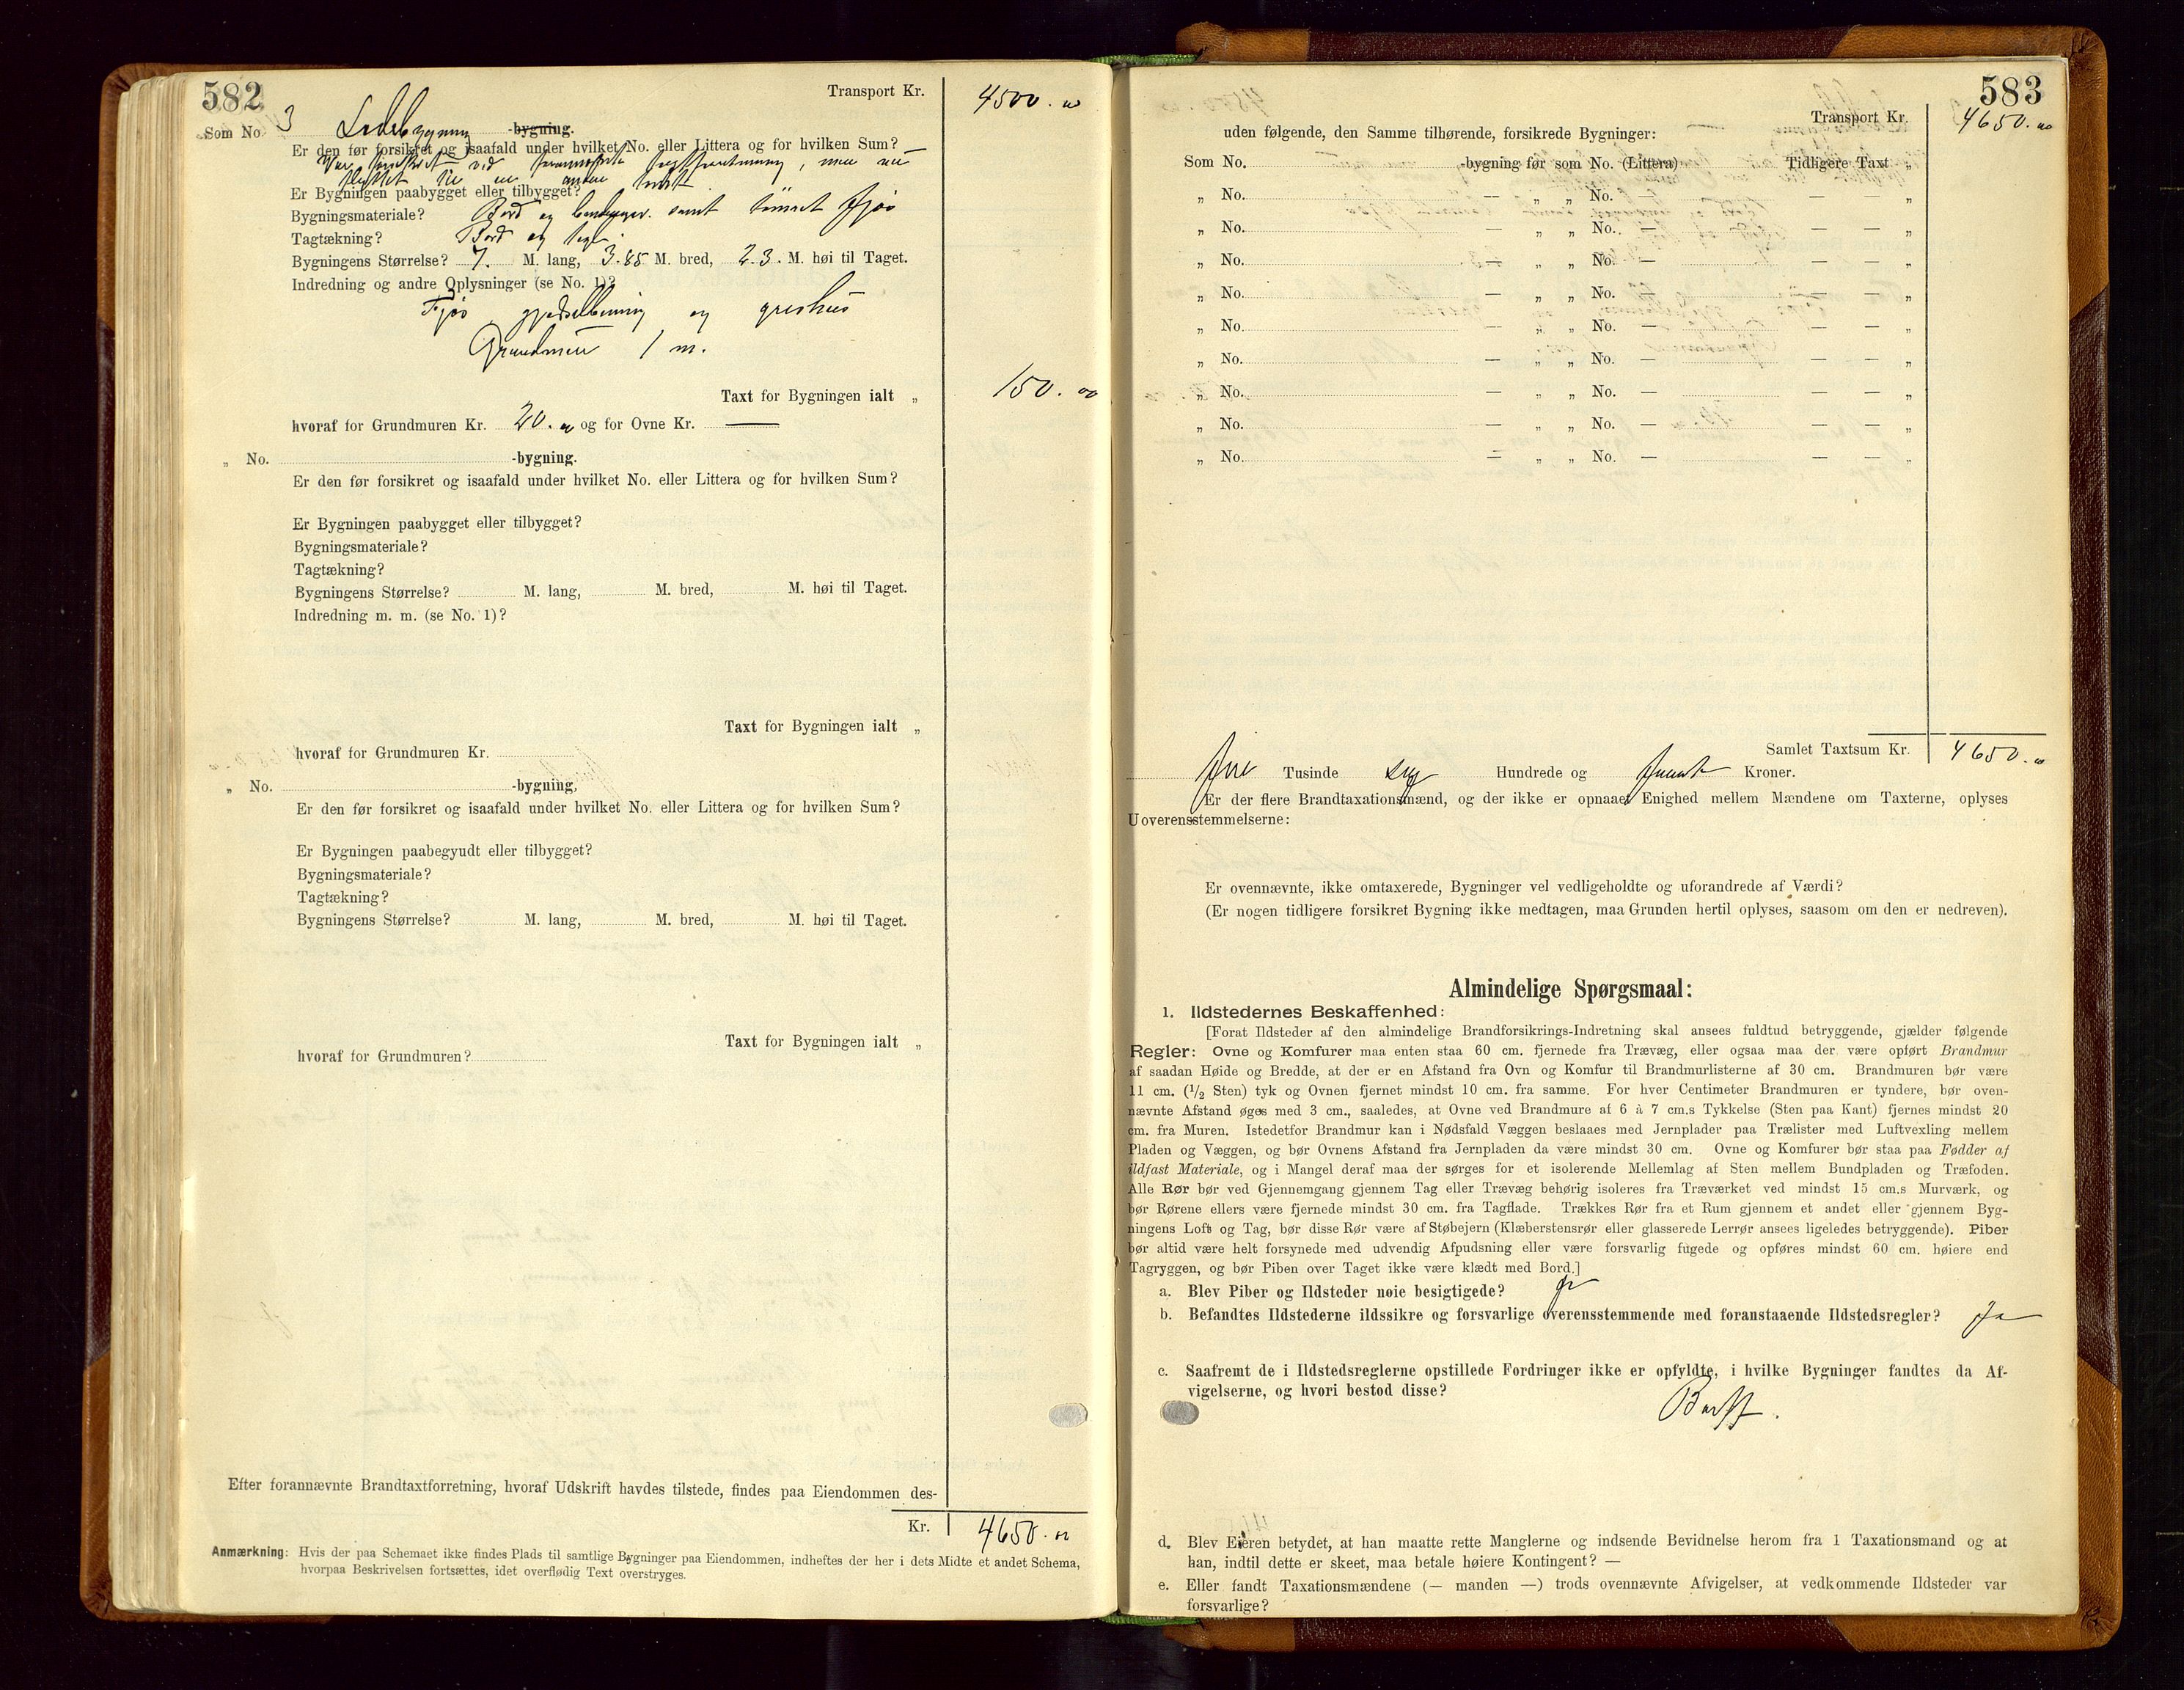 582
Transport Kr. 4500.
Som No. 3 -bygning.
Er den før forsikret og isaafald under hvilket No. eller Littera og for hvilken Sum?
men nu
flyttet til en anden tomt
Er Bygningen paabygget eller tilbygget?
Bygningsmateriale? Bord og samt tømret fjøs
Tagtækning? Bord og
Bygningens Størrelse? 7. M. lang, 3.85 M. bred, 2.3. M. høi til Taget.
Indredning og andre Oplysninger (se No. 1)?
Fjøs, gjødselbinning og grishus
Grundmur 1 m.
Taxt for Bygningen ialt „ 150. 00
hvoraf for Grundmuren Kr. 20. og for Ovne Kr. —
„ No. -bygning.
Er den før forsikret og isaafald under hvilket No. eller Littera og for hvilken Sum?
Er Bygningen paabygget eller tilbygget?
Bygningsmateriale?
Tagtækning?
Bygningens Størrelse? M. lang, M. bred, M. høi til Taget.
Indredning m. m. (se No. 1)?
Taxt for Bygningen ialt „
hvoraf for Grundmuren Kr.
„ No. -bygning,
Er den før forsikret og isaafald under hvilket No. eller Littera og for hvilken Sum?
Er Bygningen paabegyudt eller tilbygget?
Bygningsmateriale?
Tagtækning?
Bygningens Størrelse? M. lang, M. bred, M. høi til Taget.
Taxt for Bygningen ialt „
hvoraf for Grundmuren?
Efter forannævnte Brandtaxtforretning, hvoraf Udskrift havdes tilstede, findes paa Eiendommen des-
Kr. 4650.
Anmærkning: Hvis der paa Schemaet ikke findes Plads til samtlige Bygninger paa Eiendommen, indheftes der her i dets Midte et andet Schema,
hvorpaa Beskrivelsen fortsættes, idet overflødig Text overstryges.
583
Transport Kr. 4650.
uden følgende, den Samme tilhørende, forsikrede Bygninger:
Som No. -bygning før som No. (Littera) Tidligere Taxt „
„ No. — „ „ No. — — — „
„ No. — „ „ No. — — — „
„ No. — „ „ No. — — — „
„ No. — „ „ No. — — — „
„ No. — „ „ No. — — — „
„ No. — „ „ No. — — — „
„ No. — „ „ No. — — — „
„ No. — „ „ No. — — — „
„ No. — „ „ No. — — — „
Samlet Taxtsum Kr. 4650.
fire Tusinde sex Hundrede og femti Kroner.
Er der flere Brandtaxationsmænd, og der ikke er opnaaet Enighed mellem Mændene om Taxterne, oplyses
Uoverensstemmelserne:
Er ovennævnte, ikke omtaxerede, Bygninger vel vedligeholdte og uforandrede af Værdi?
(Er nogen tidligere forsikret Bygning ikke medtagen, maa Grunden hertil oplyses, saasom om den er nedreven).
Almindelige Spørgsmaal:
1. Ildstedernes Beskaffenhed:
[Forat Ildsteder af den almindelige Brandforsikrings-Indretning skal ansees fuldtud betryggende, gjælder følgende
Regler: Ovne og Komfurer maa enten staa 60 cm. fjernede fra Trævæg, eller ogsaa maa der være opført Brandmur
af saadan Høide og Bredde, at der er en Afstand fra Ovn og Komfur til Brandmurlisterne af 30 cm. Brandmuren bør være
11 cm. (1/2 Sten) tyk og Ovnen fjernet mindst 10 cm. fra samme. For hver Centimeter Brandmuren er tyndere, bør oven-
nævnte Afstand øges med 3 cm., saaledes, at Ovne ved Brandmure af 6 à 7 cm.s Tykkelse (Sten paa Kant) fjernes mindst 20
cm. fra Muren. Istedetfor Brandmur kan i Nødsfald Væggen beslaaes med Jernplader paa Trælister med Luftvexling mellem
Pladen og Væggen, og bør Ovnens Afstand fra Jernpladen da være mindst 30 cm. Ovne og Komfurer bør staa paa Fødder af
ildfast Materiale, og i Mangel deraf maa der sørges for et isolerende Mellemlag af Sten mellem Bundpladen og Træfoden.
Alle Rør bør ved Gjennemgang gjennem Tag eller Trævæg behørig isoleres fra Træværket ved mindst 15 cm.s Murværk, og
bør Rørene ellers være fjernede mindst 30 cm. fra Tagflade. Trækkes Rør fra et Rum gjennem et andet eller gjennem Byg-
ningens Loft og Tag, bør disse Rør være af Støbejern (Klæberstensrør eller glasserede Lerrør ansees ligeledes betryggende). Piber
bør altid være helt forsynede med udvendig Afpudsning eller være forsvarlig fugede og opføres mindst 60 cm. høiere end
Tagryggen, og bør Piben over Taget ikke være klædt med Bord.]
a. Blev Piber og Ildsteder nøie besigtigede? Ja
b. Befandtes Ildstederne ildssikre og forsvarlige overensstemmende med foranstaaende Ildstedsregler? Ja
c. Saafremt de i Ildstedsreglerne opstillede Fordringer ikke er opfyldte, i hvilke Bygninger fandtes da Af-
vigelserne, og hvori bestod disse?
Bortf.
d. Blev Eieren betydet, at han maatte rette Manglerne og indsende Bevidnelse herom fra 1 Taxationsmand og at
han, indtil dette er skeet, maa betale høiere Kontingent? —
e. Eller fandt Taxationsmændene (— manden —) trods ovennævnte Afvigelser, at vedkommende Ildsteder var
forsvarlige?